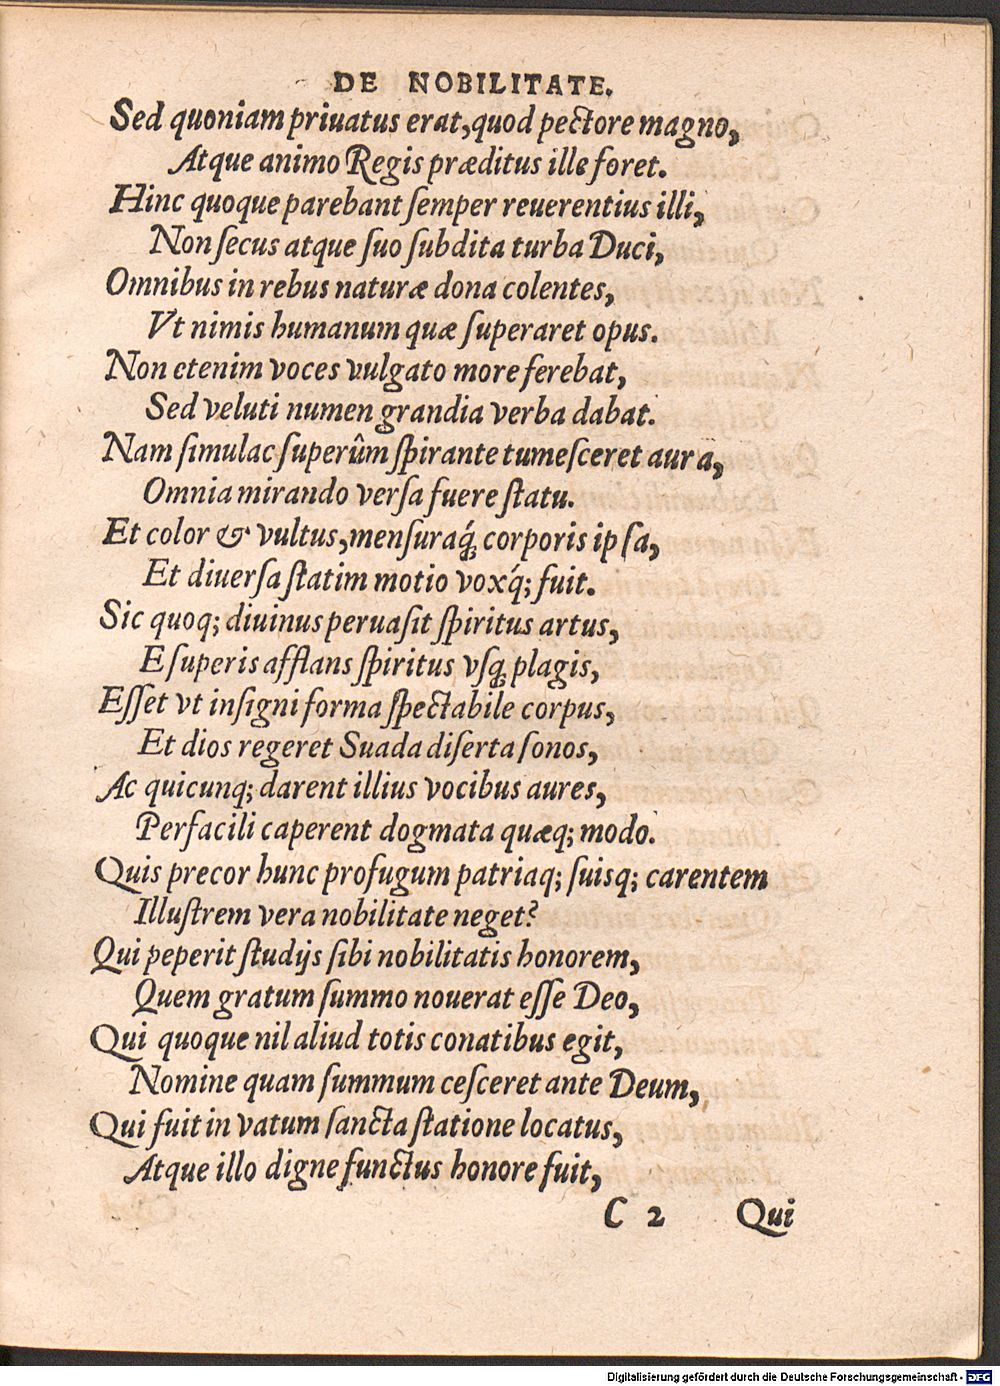 DE NOBILITATE.
Sed quoniam priuatus erat, quod pectore magno,
Atque animo Regis præditus ille foret.
Hinc quoque parebant ſemper reuerentius illi,
Non ſecus atque ſuo ſubdita turba Duci,
Omnibus in rebus naturæ dona colentes,
Vt nimis humanum quæ ſuperaret opus.
Non etenim voces vulgato more ferebat,
Sed veluti numen grandia verba dabat.
Nam ſimulac ſuperûm ſpirante tumeſceret aura,
Omnia mirando verſa fuere ſtatu.
Et color & vultus, menſuraq́; corporis ipſa,
Et diuerſa ſtatim motio voxq́; fuit.
Sic quoq; diuinus peruaſit ſpiritus artus,
E ſuperis afflans ſpiritus vſq; plagis,
Eſſet vt inſigni forma ſpectabile corpus,
Et dios regeret Suada diſerta ſonos,
Ac quicunq; darent illius vocibus aures,
Perfacili caperent dogmata quæq; modo.
Quis precor hunc profugum patriaq; ſuisq; carentem
Illuſtrem vera nobilitate neget?
Qui peperit ſtudijs ſibi nobilitatis honorem,
Quem gratum ſummo nouerat eſſe Deo,
Qui quoque nil aliud totis conatibus egit,
Nomine quam ſummum ceſceret ante Deum,
Qui fuit in vatum ſancta ſtatione locatus,
Atque illo digne functus honore fuit,
C 2 Qui
Digitalisierung gefördert durch die Deutsche Forschungsgemeinschaft - DFG